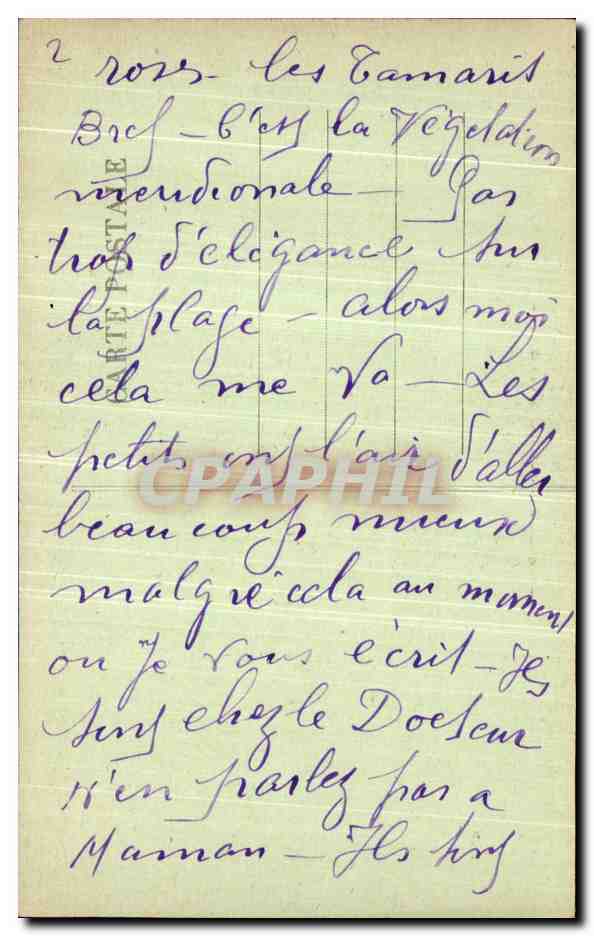 2
roses - les Tamaris
Bref - c'est la Végétation
meridionale - Pas
trop d'élégance sur
la plage - alors moi
cela me va - Les
petits ont l'air d'aller
beaucoup mieux
malgré cela au moment
ou je vous écrit - Ils
sont chez le Docteur
N'en parlez pas a
Maman - Ils sont
CARTE POSTALE
CPAPHIL